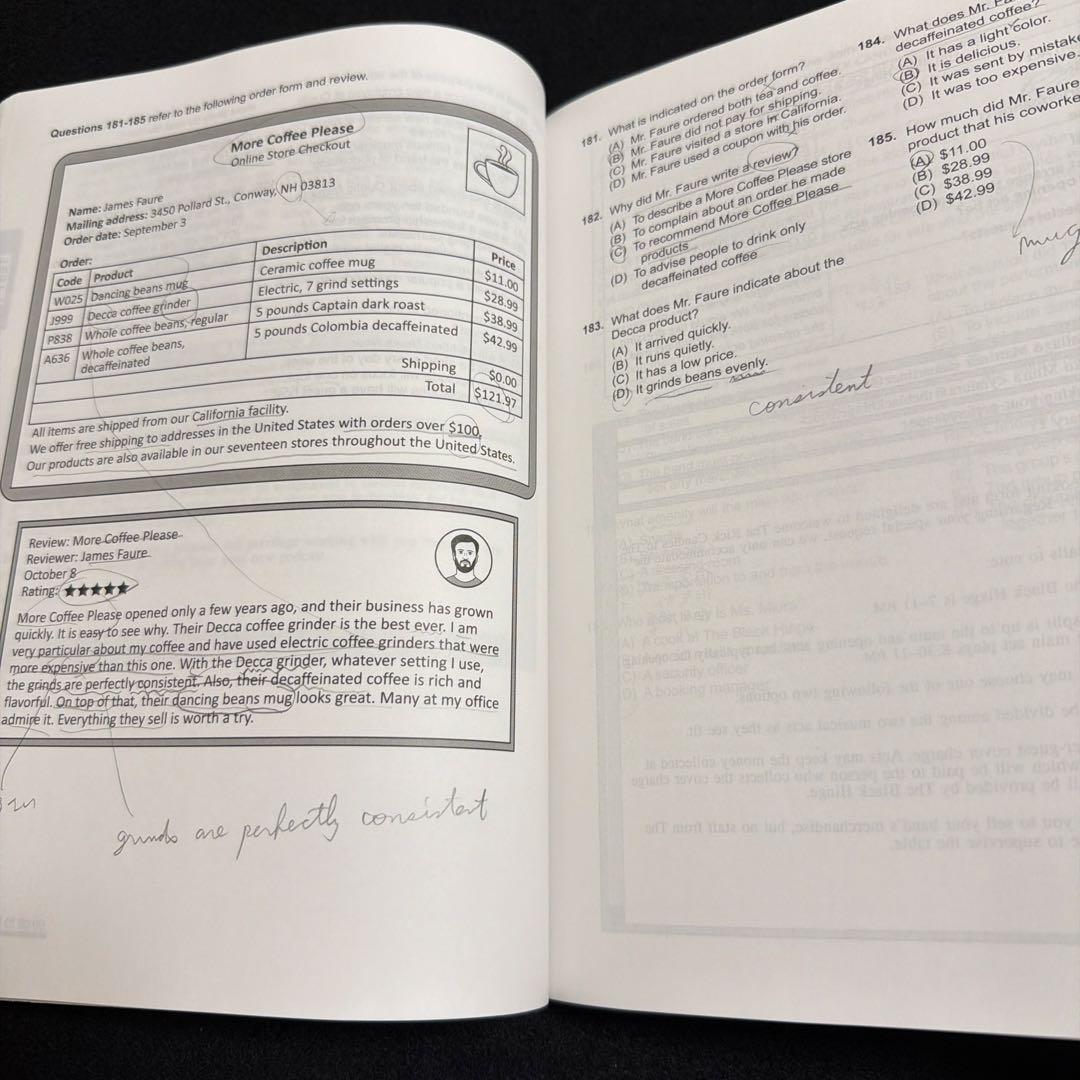 Questions 181-185 refer to the following order form and review.
More Coffee Please
Online Store Checkout
Name: James Faure
Mailing address: 3450 Pollard St., Conway, NH 03813
Order date: September 3
Order:
Code Product Description Price
W025 Dancing beans mug Ceramic coffee mug $11.00
J999 Decca coffee grinder Electric, 7 grind settings $28.99
P838 Whole coffee beans, regular 5 pounds Captain dark roast $38.99
A636 Whole coffee beans, decaffeinated 5 pounds Colombia decaffeinated $42.99
Shipping $0.00
Total $121.97
All items are shipped from our California facility.
We offer free shipping to addresses in the United States with orders over $100.
Our products are also available in our seventeen stores throughout the United States.
Review: More Coffee Please
Reviewer: James Faure
October 8
Rating: ★★★★★
More Coffee Please opened only a few years ago, and their business has grown
quickly. It is easy to see why. Their Decca coffee grinder is the best ever. I am
very particular about my coffee and have used electric coffee grinders that were
more expensive than this one. With the Decca grinder, whatever setting I use,
the grinds are perfectly consistent. Also, their decaffeinated coffee is rich and
flavorful. On top of that, their dancing beans mug looks great. Many at my office
admire it. Everything they sell is worth a try.
grinds are perfectly consistent
181. What is indicated on the order form?
(A) Mr. Faure ordered both tea and coffee.
(B) Mr. Faure did not pay for shipping.
(C) Mr. Faure visited a store in California.
(D) Mr. Faure used a coupon with his order.
182. Why did Mr. Faure write a review?
(A) To describe a More Coffee Please store
(B) To complain about an order he made
(C) To recommend More Coffee Please
products
(D) To advise people to drink only
decaffeinated coffee
183. What does Mr. Faure indicate about the
Decca product?
(A) It arrived quickly.
(B) It runs quietly.
(C) It has a low price.
(D) It grinds beans evenly.
consistent
184. What does Mr.
decaffeinated coffee?
(A) It has a light color.
(B) It is delicious.
(C) It was sent by mistake
(D) It was too expensive.
185. How much did Mr. Faure
product that his coworke
(A) $11.00
(B) $28.99
(C) $38.99
(D) $42.99
mug